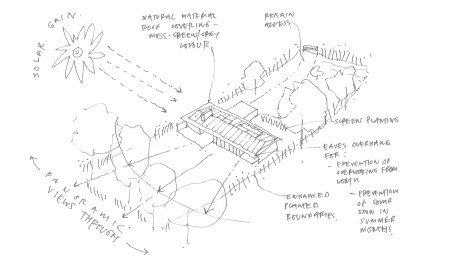 SOLAR GAIN.
NATURAL MATERIAL
ROOF COVERING -
MOSS-GREEN/GREY
COLOUR
REMAIN
ACCESS.
SCREEN PLANTING
EAVES OVERHANG
FOR:
- PREVENTION OF
OVERLOOKING FROM
NORTH
- PREVENTION
OF SOLAR
GAIN IN
SUMMER
MONTHS.
ENHANCED
PLANTED
BOUNDARIES.
PANORAMIC
VIEWS THROUGH